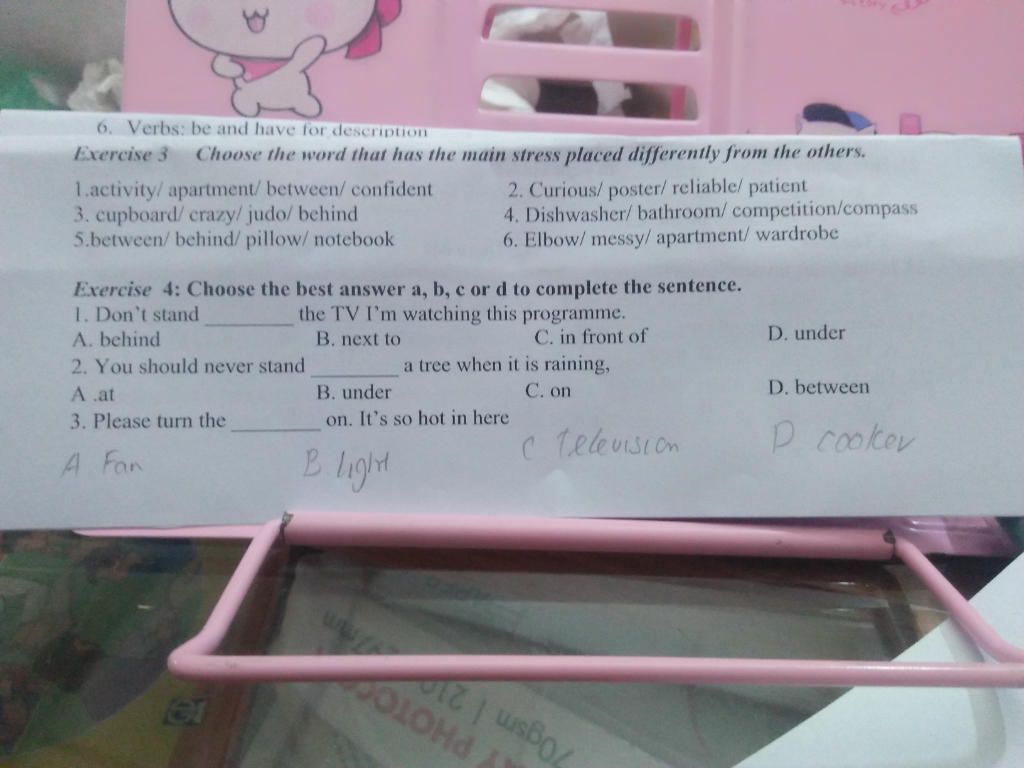 6. Verbs: be and have for description
Exercise 3 Choose the word that has the main stress placed differently from the others.
1.activity/ apartment/ between/ confident 2. Curious/ poster/ reliable/ patient
3. cupboard/ crazy/ judo/ behind 4. Dishwasher/ bathroom/ competition/compass
5.between/ behind/ pillow/ notebook 6. Elbow/ messy/ apartment/ wardrobe
Exercise 4: Choose the best answer a, b, c or d to complete the sentence.
1. Don't stand _________ the TV I'm watching this programme.
A. behind B. next to C. in front of D. under
2. You should never stand _________ a tree when it is raining,
A .at B. under C. on D. between
3. Please turn the _________ on. It's so hot in here
A Fan B light C Television D cooker
297mm
70gsm | 210